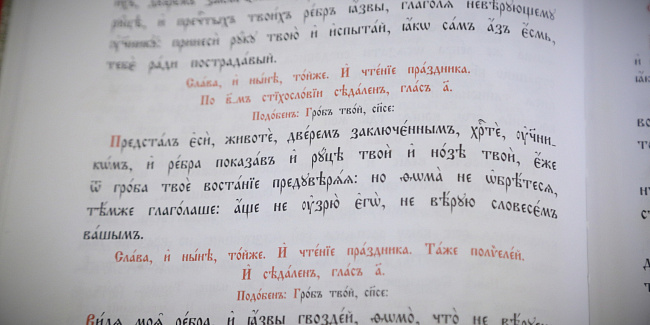 руцѣ, и҆ пречⷭ҇тыхъ твои́хъ ре́бръ ꙗ҆́звы, глаго́лѧ невѣ́рꙋющемꙋ
ᲂу҆чн҃кꙋ̀: принесѝ рꙋ́кꙋ твою̀ и҆ и҆спыта́й, ꙗ҆́кѡ са́мъ а҆́зъ є҆́смь,
тебє̀ ра́ди пострада́вый.
Сла́ва, и҆ ны́нѣ, то́йже. И҆ чте́нїе пра́здника.
По в҃-мъ стїхосло́вїи сѣда́ленъ, гла́съ а҃.
Подо́бенъ: Гро́бъ тво́й, сп҃се:
Предста́лъ є҆сѝ, животѐ, две́ремъ заключє́ннымъ, хрⷭ҇тѐ, ᲂу҆чн҃и-
кѡ́мъ, и҆ ре́бра показа́въ и҆ рꙋ́цѣ твоѝ и҆ но́зѣ твоѝ, є҆́же
ѿ гро́ба твоѐ воста́нїе предꙋвѣрѧ́ѧ: но ѳѡма̀ не ѡ҆брѣ́тесѧ,
тѣ́мже глаго́лаше: а҆́ще не ᲂу҆зрю̀ є҆гѡ̀, не вѣ́рꙋю словесє́мъ
ва́шымъ.
Сла́ва, и҆ ны́нѣ, то́йже. И҆ чте́нїе пра́здника. Та́же полѷеле́й.
И҆ сѣда́ленъ, гла́съ а҃.
Подо́бенъ: Гро́бъ тво́й, сп҃се:
Ви́дѧ моѧ̑ ре́бра и҆ ꙗ҆́звы гвозде́й, ѳѡмо̀, что̀ не